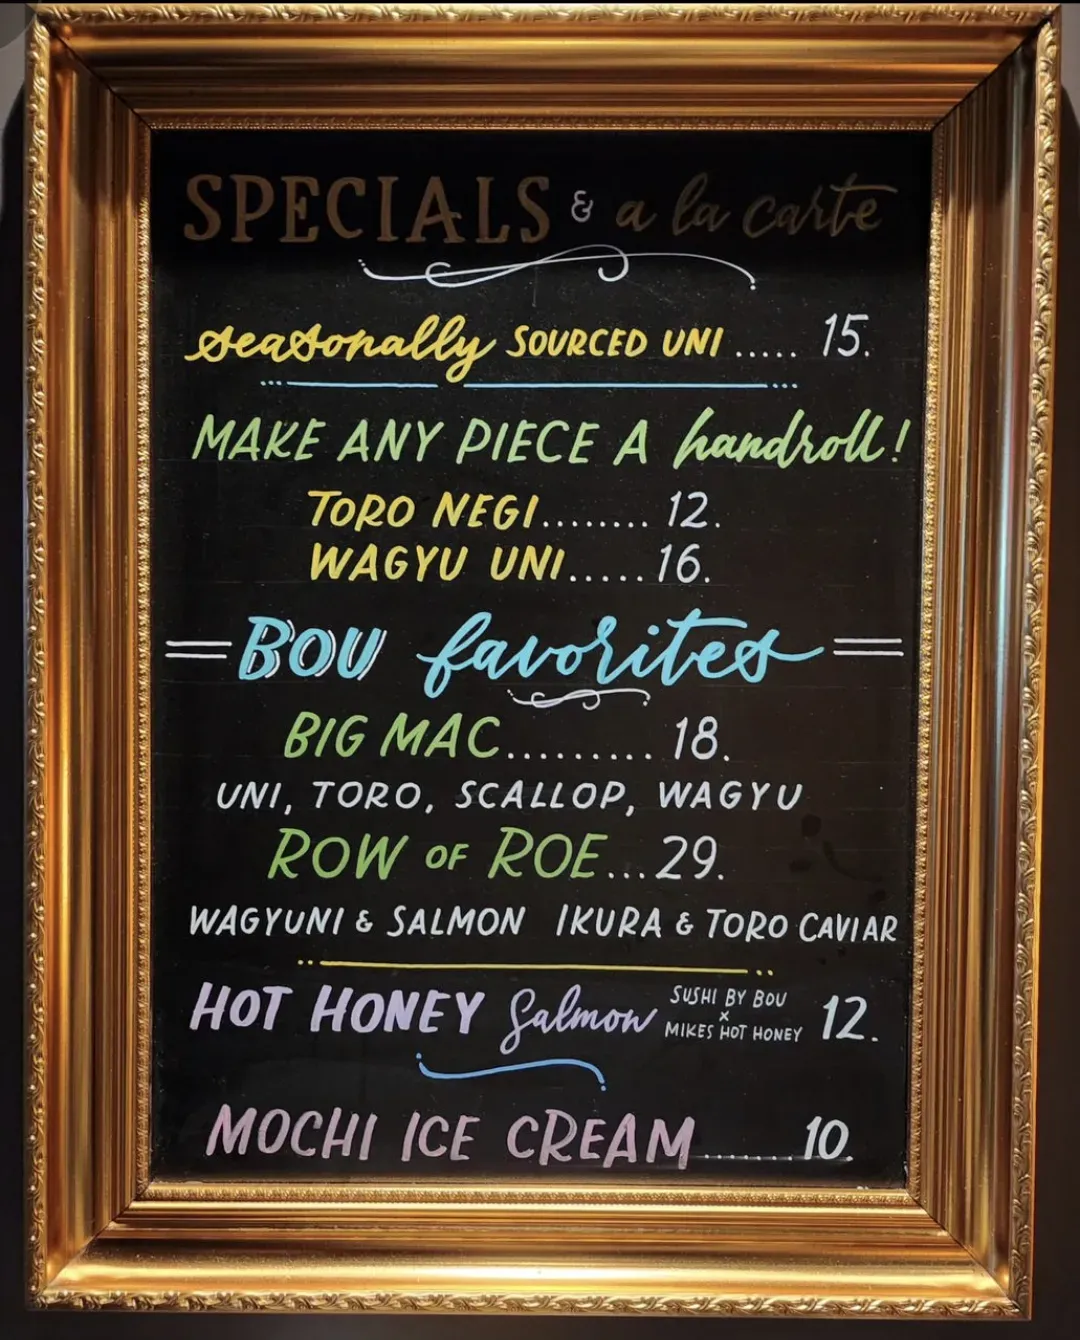 SPECIALS & a la carte
seasonally SOURCED UNI ..... 15.
MAKE ANY PIECE A handroll!
TORO NEGI........ 12.
WAGYU UNI.....16.
BOU favorites
BIG MAC......... 18.
UNI, TORO, SCALLOP, WAGYU
ROW OF ROE...29.
WAGYUNI & SALMON IKURA & TORO CAVIAR
HOT HONEY Salmon SUSHI BY BOU x MIKES HOT HONEY 12.
MOCHI ICE CREAM.......10.